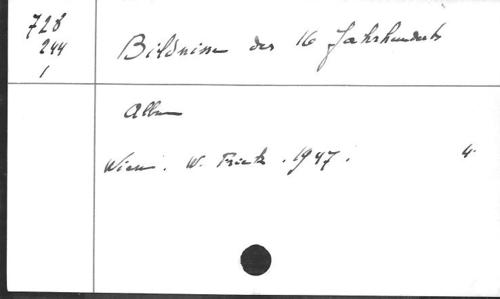 728
244
1
Bildnisse des 16 Jahrhunderts
Album
Wien. W. Frick. 1947.
4